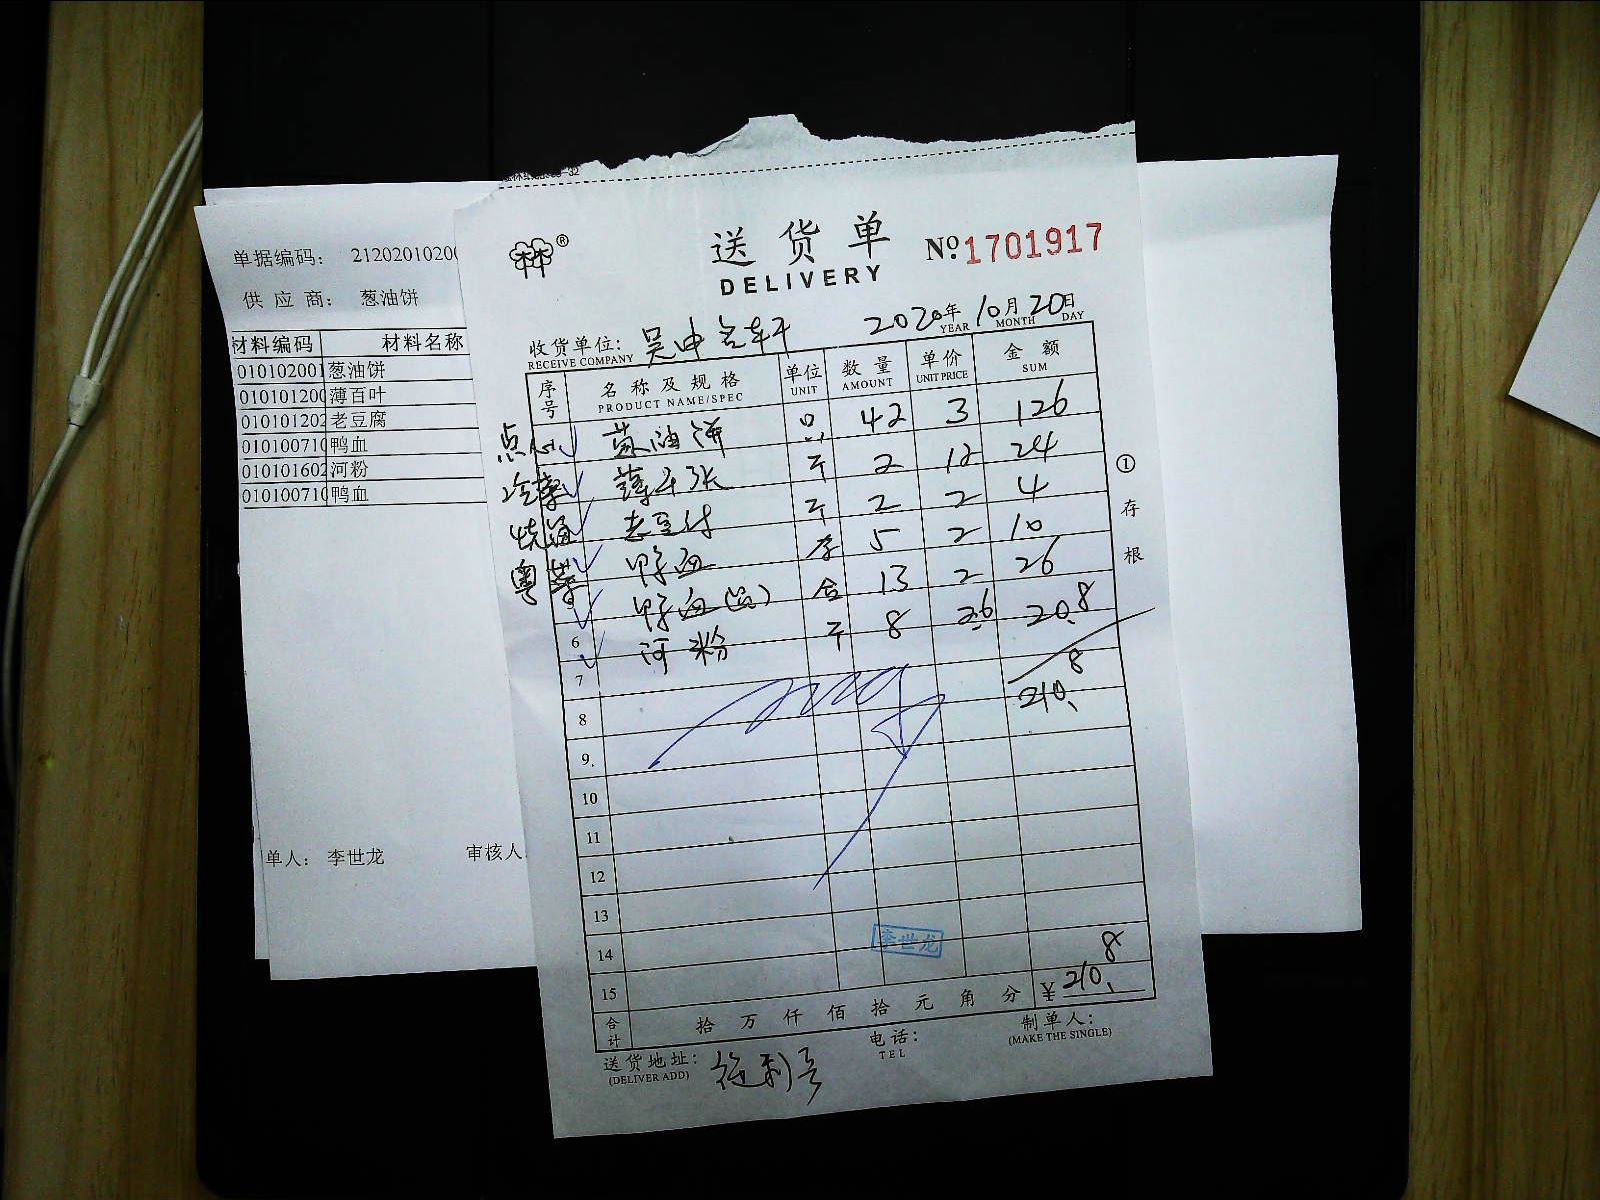 单据编码： 2120201020
供 应 商： 葱油饼
材料编码 材料名称
010102001 葱油饼
01010120 薄百叶
010101202 老豆腐
01010071 鸭血
010101602 河粉
01010071 鸭血
单人： 李世龙 审核人
送货单
DELIVERY
№ 1701917
2020年 10月 20日
YEAR MONTH DAY
收货单位：
RECEIVE COMPANY
序号 名称及规格 单位 数量 单价 金额
PRODUCT NAME/SPEC UNIT AMOUNT UNIT PRICE SUM
点心 油饼 只 42 3 126
薄千张 斤 2 12 24
老豆付 斤 2 2 4
粤菜 鸭血 5 2 10
鸭血 盒 13 2 26
6 河粉 斤 8 2.6 20.8
7
210.8
8
9
10
11
12
13
14
李世龙
15
合计 拾 万 仟 佰 拾 元 角 分 ¥ 210.8
送货地址：
(DELIVER ADD)
电话：
TEL
制单人：
(MAKE THE SINGLE)
① 存根